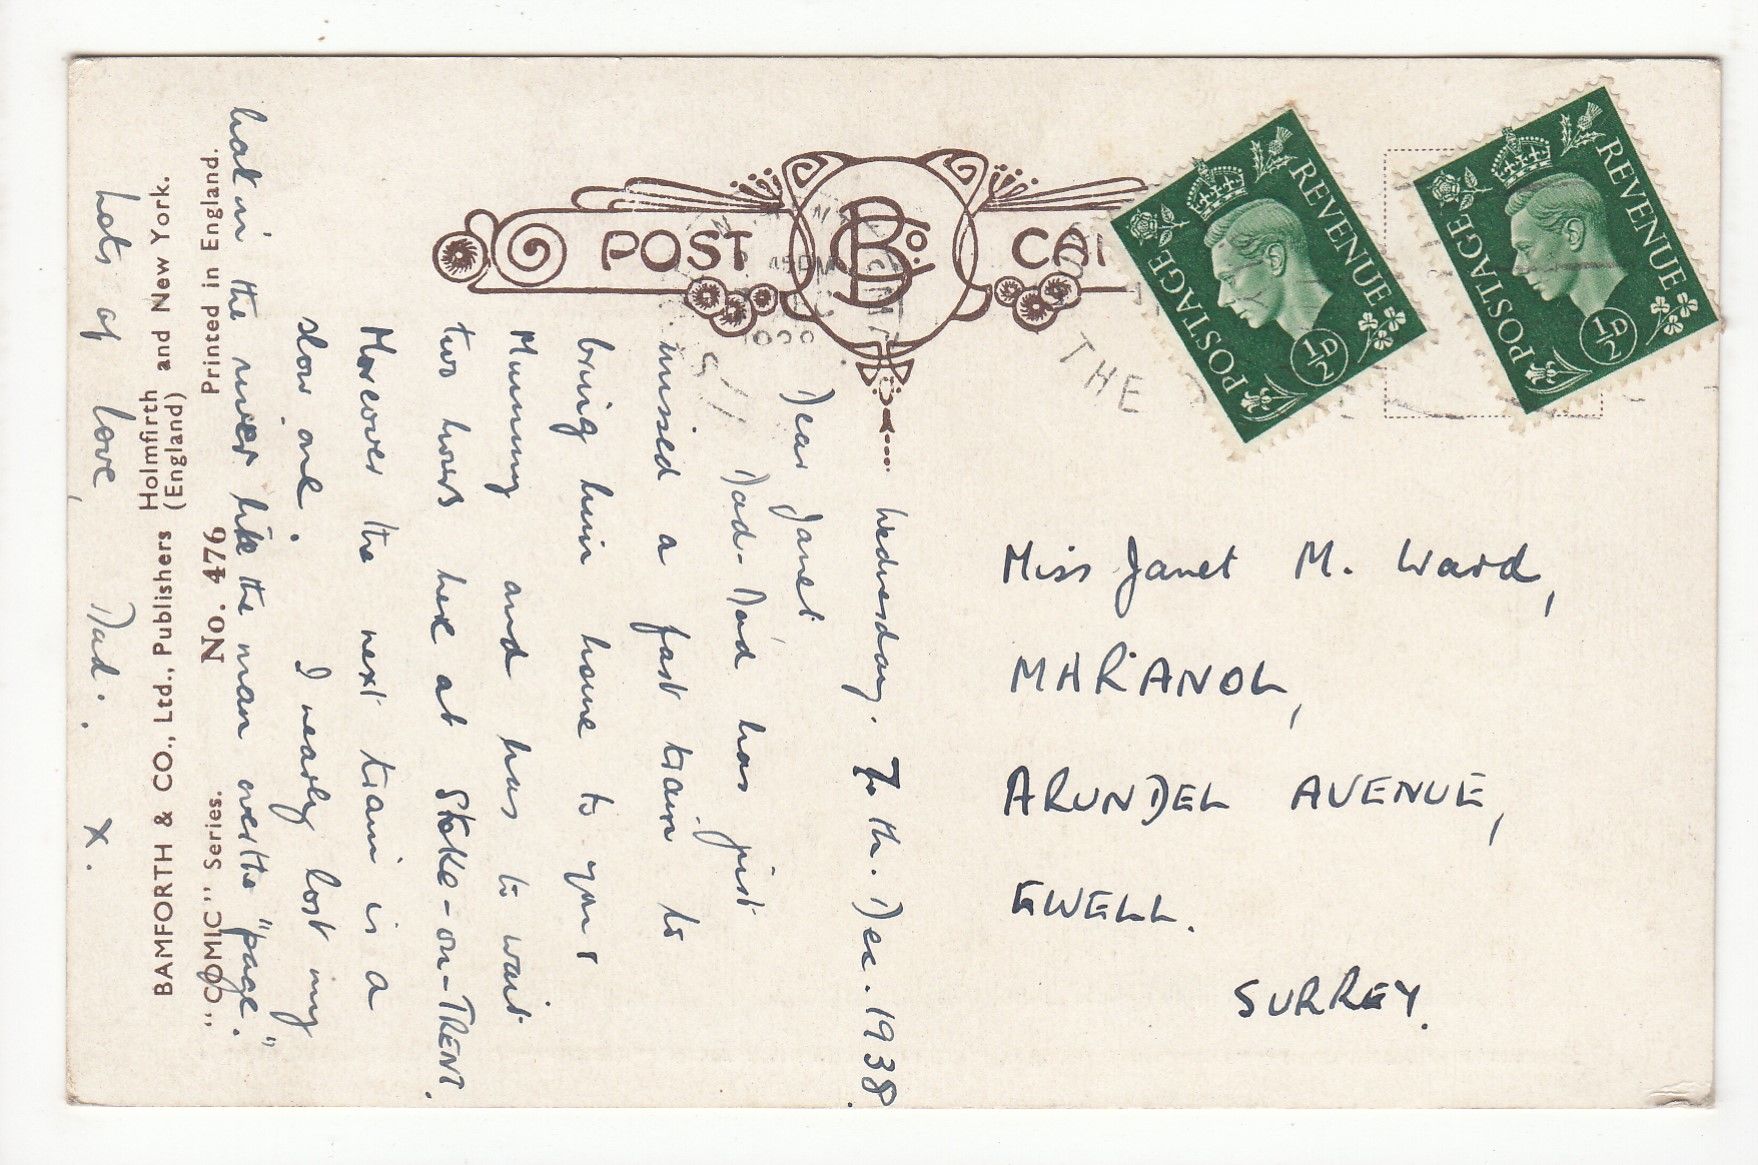 POST CA
B & Co. Ltd
THE
POSTAGE REVENUE
½D
POSTAGE REVENUE
½D
Wednesday. 7th. Dec. 1938.
Dear Janet
Dad-Dad has just
missed a fast train to
bring him home to your
Mummy and has to wait
two hours here at Stoke-on-TRENT.
Moreover the next train is a
slow one. I nearly lost my
hat in the river like the man over the "page."
Lots of love, Dad. x.
Miss Janet M. Ward,
MARANOL,
ARUNDEL AVENUE,
EWELL.
SURREY.
BAMFORTH & CO., Ltd., Publishers Holmfirth (England) and New York.
"COMIC" Series. No. 476 Printed in England.